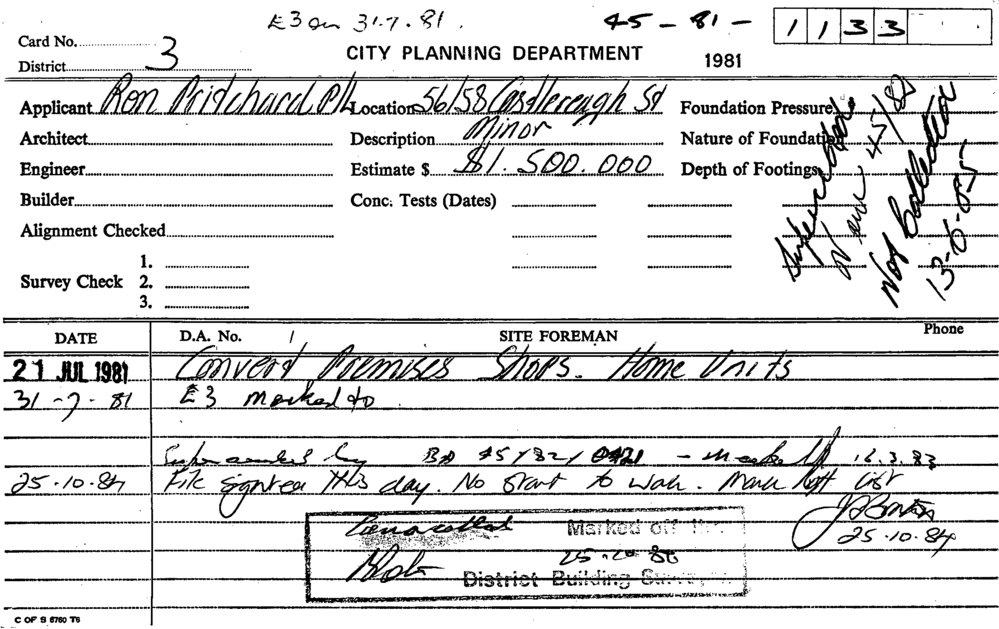 E3 on 31.7.81. 45-81- 1133
Card No.
District 3
CITY PLANNING DEPARTMENT 1981
Applicant Ron Pritchard P/L Location 56/58 Castlereagh St Foundation Pressure
Architect Description Minor Nature of Foundation
Engineer Estimate $ $1.500.000 Depth of Footings
Builder Conc. Tests (Dates)
Alignment Checked
1.
Survey Check 2.
3.
45/82
Not Collected
13-6-85
DATE D.A. No. SITE FOREMAN Phone
21 JUL 1981 Convert Premises Shops. Home Units
31-7-81 E3 marked to
Superseded by BA 45/82/ - 12.3.83
25.10.84 File sighted this day. No start to work. Mark off list
25.10.84
Marked off
25.10.84
District Building Surveyor
C OF S 6760 T6